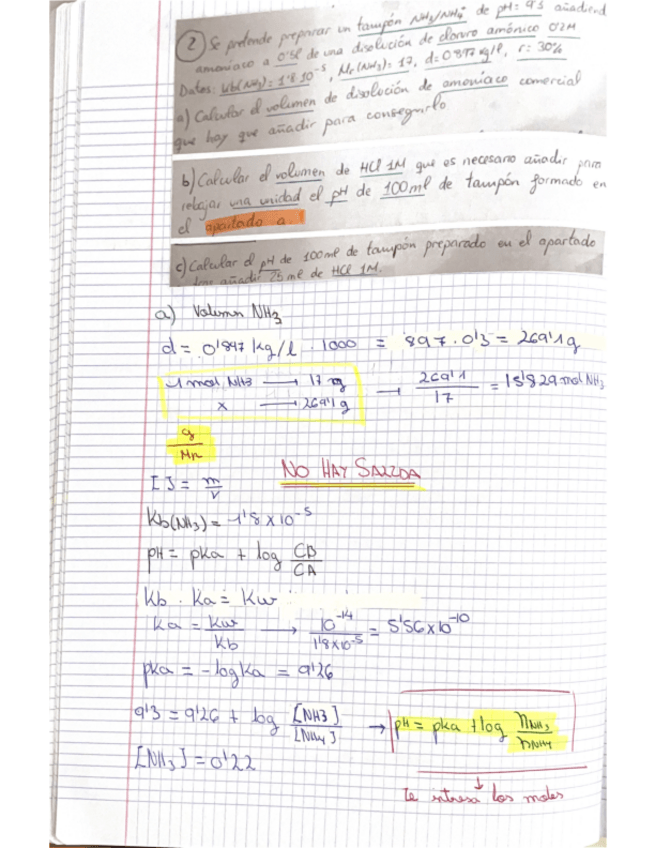 2) Se pretende preparar un tampón NH3/NH4+ de pH= 9'3 añadiend
amoniaco a 0'5l de una disolución de cloruro amónico 0'2M
Datos: Kb(NH3)= 1'8·10-5, Mr(NH3)= 17, d= 0'897 kg/l, r= 30%
a) Calcular el volumen de disolución de amoníaco comercial
que hay que añadir para conseguirlo
b) Calcular el volumen de HCl 1M que es necesario añadir para
rebajar una unidad el pH de 100ml de tampón formado en
el apartado a.
c) Calcular el pH de 100ml de tampón preparado en el apartado
tras añadir 25 ml de HCl 1M.
a) Volumen NH3
d = 0'897 kg/l · 1000 = 897 · 0'3 = 269'1g
1 mol NH3 → 17 g
x → 269'1 g
→ 269'1 / 17 = 15'829 mol NH3
g / Mr
NO HAY SALIDA
[ ] = m / V
Kb(NH3) = 1'8 x 10-5
pH = pka + log CB / CA
Kb · Ka = Kw
Ka = Kw / Kb → 10-14 / 1'8x10-5 = 5'56 x 10-10
pka = - log Ka = 9'26
9'3 = 9'26 + log [NH3] / [NH4] → pH = pka + log nNH3 / nNH4
[NH3] = 0'22
Te intresa los moles